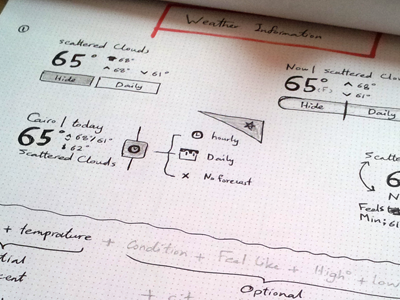 Weather Information
①
scattered Clouds
65° 68°
^ 68° ˅ 61°
Hide Daily
Now | scattered Clo
65°(F) ^ 68°
˅ 61°
Hide Daily
Cairo | today
65° 68°/61°
62°
Scattered Clouds
hourly
Daily
x No forecast
Scatte
6
Feels
Min: 61
+ temprature + Condition + Feel like + High° + Low
Optional